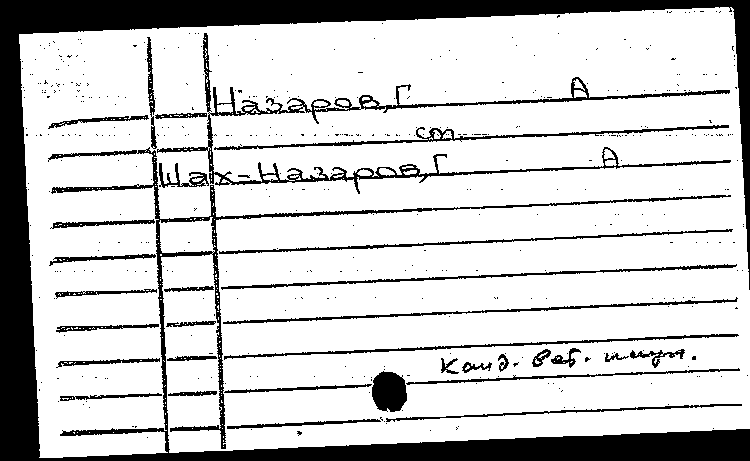 Назаров, Г А
см.
Шах-Назаров, Г А
Канд.